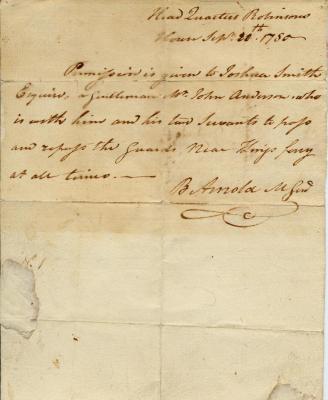 Head Quarters Robinsons
House Sepr. 20th. 1780
Permission is given to Joshua Smith
Esquire, a gentleman Mr. John Anderson who
is with him and his two Servants to pass
and repass the Guards Near Kings ferry
at all times.
B Arnold M Genl